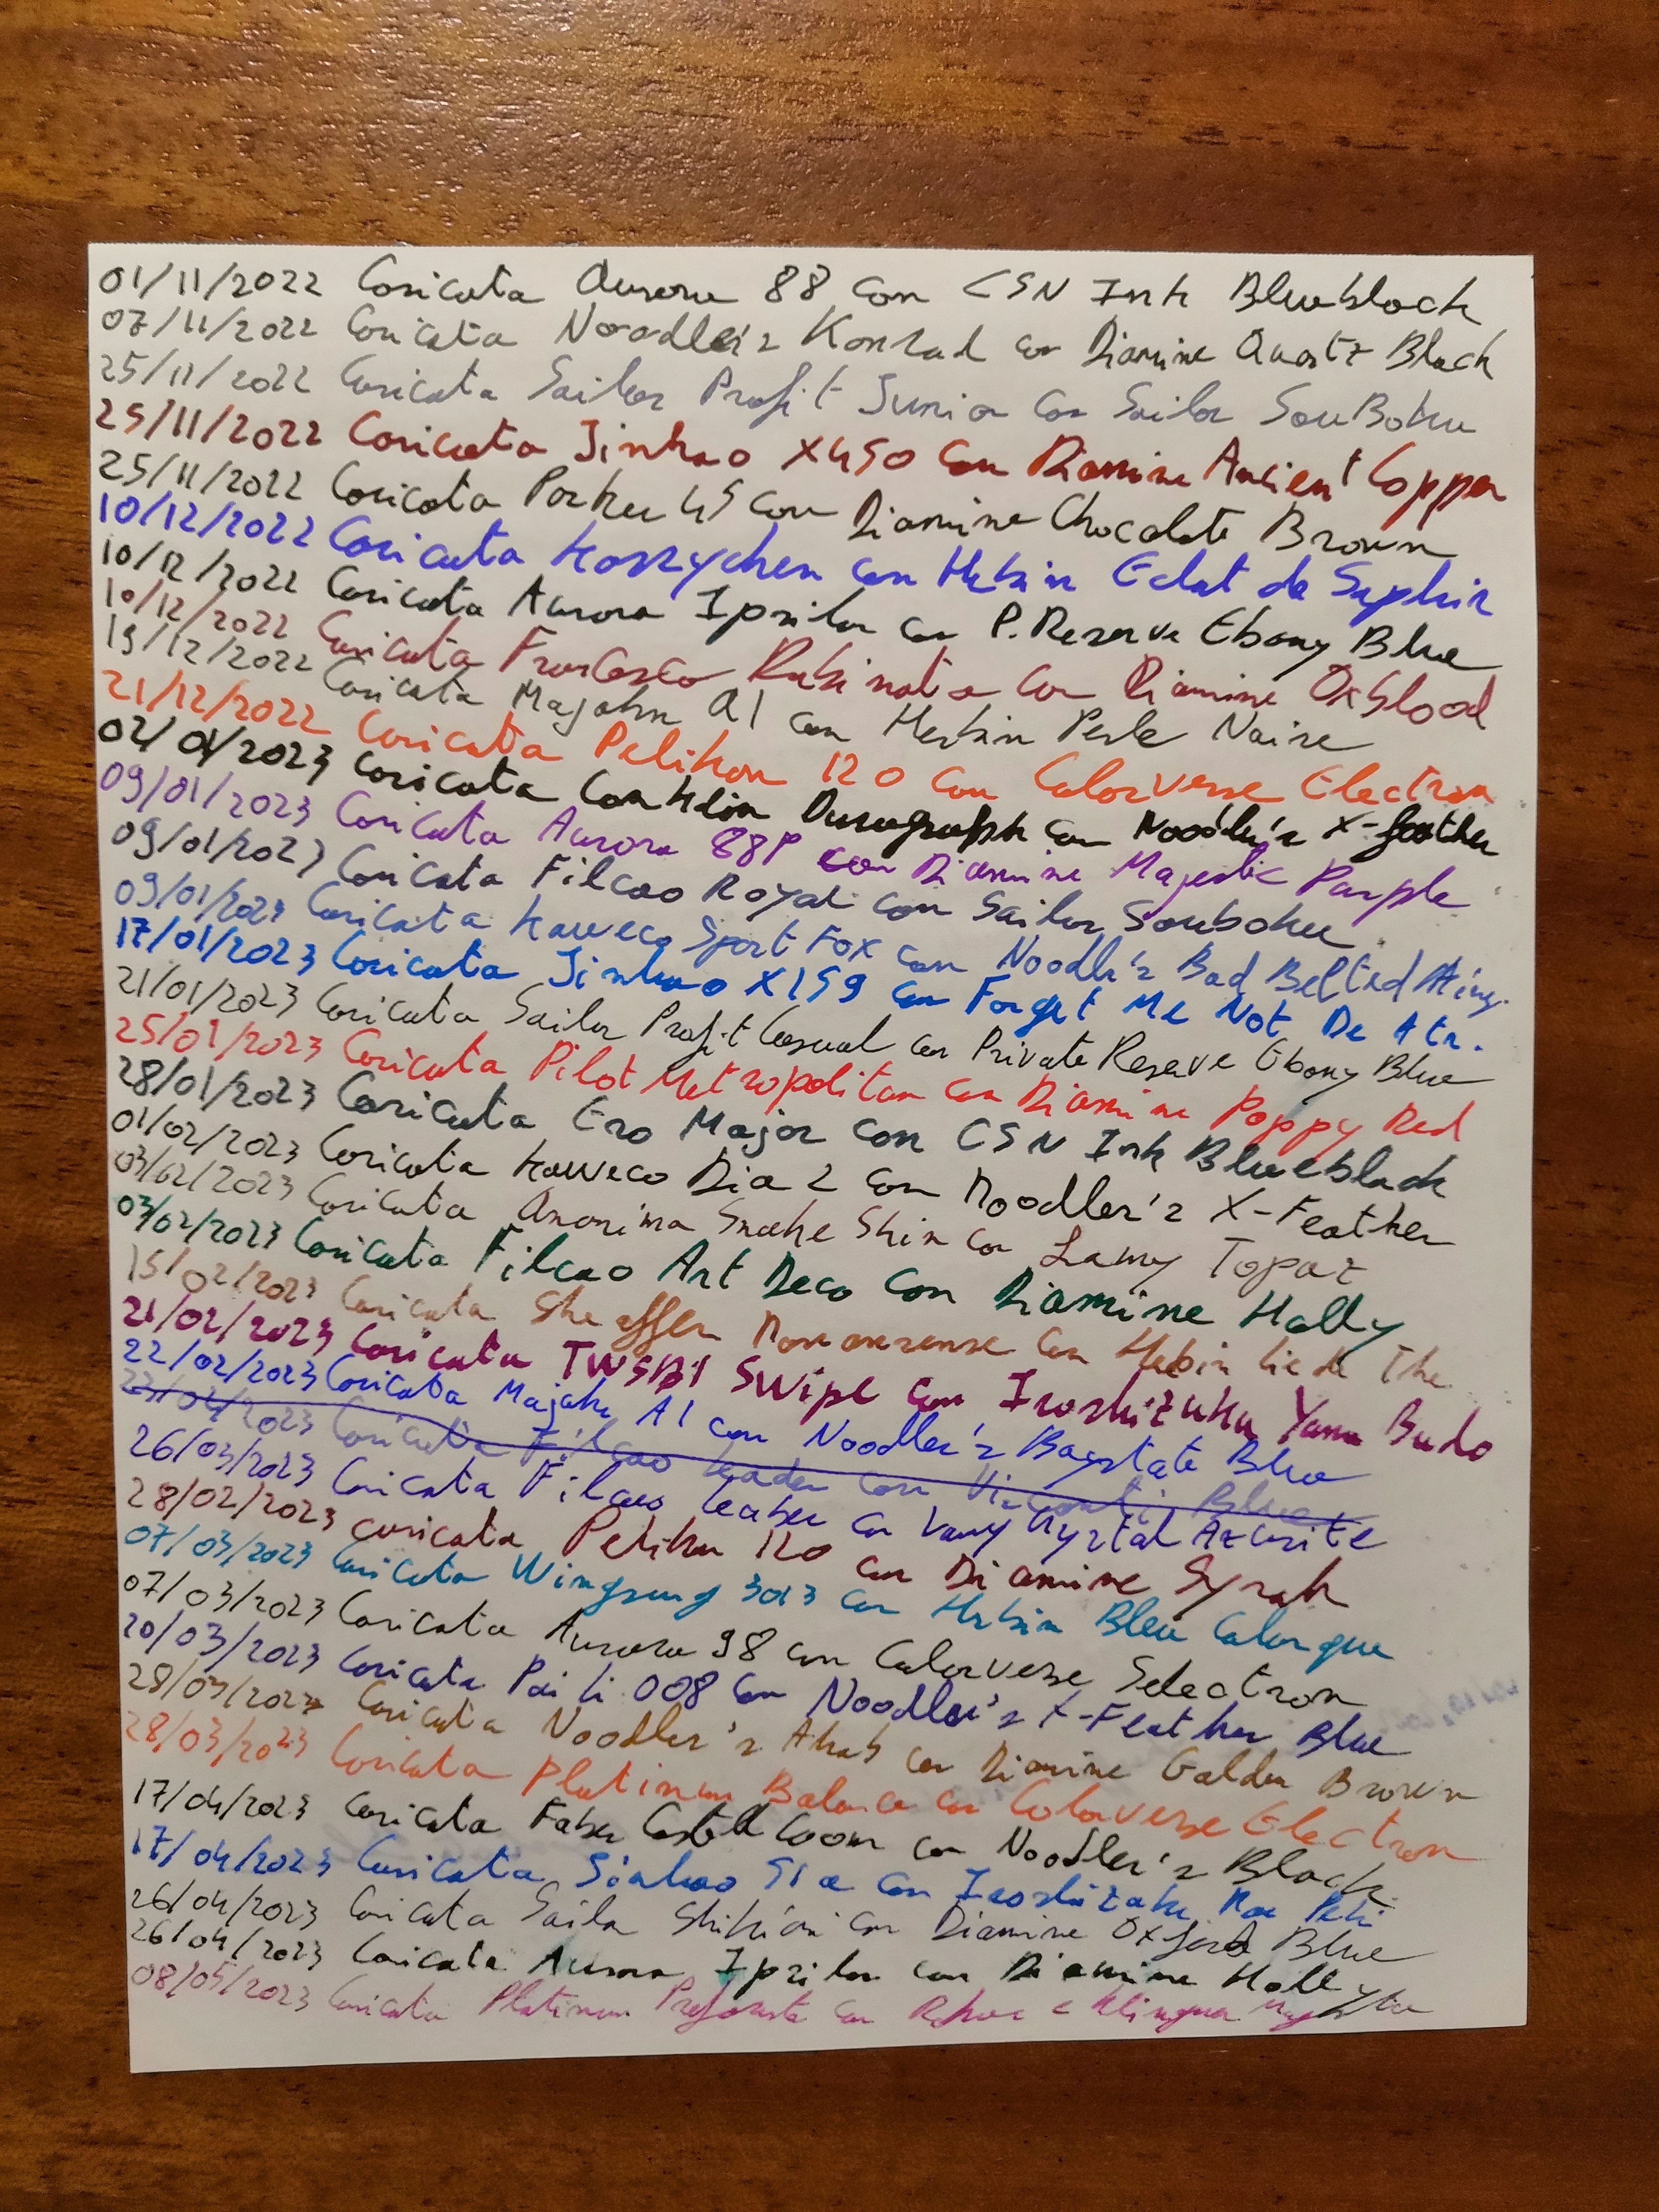 01/11/2022 Caricata Aurora 88 con CSN Ink Blueblack
07/11/2022 Caricata Noodler's Konrad con Diamine Quartz Black
25/11/2022 Caricata Sailor Profit Junior con Sailor SouBoku
25/11/2022 Caricata Jinhao X450 con Diamine Ancient Copper
25/11/2022 Caricata Parker 45 con Diamine Chocolate Brown
10/12/2022 Caricata Kossychen con Herbin Eclat de Saphir
10/12/2022 Caricata Aurora Ipsilon con P. Reserve Ebony Blue
10/12/2022 Caricata Francesco Rubinato con Diamine Oxblood
19/12/2022 Caricata Majohn A1 con Herbin Perle Noire
21/12/2022 Caricata Pelikan 120 con Colorverse Electron
02/01/2023 Caricata Conklin Duragraph con Noodler's X-feather
09/01/2023 Caricata Aurora 88P con Diamine Majestic Purple
09/01/2023 Caricata Filcao Royal con Sailor Souboku
09/01/2023 Caricata Kaweco Sport Fox con Noodler's Bad Belted King.
17/01/2023 Caricata Jinhao X159 con Forget Me Not De Atr.
21/01/2023 Caricata Sailor Profit Casual con Private Reserve Ebony Blue
25/01/2023 Caricata Pilot Metropolitan con Diamine Poppy Red
28/01/2023 Caricata Ero Major con CSN Ink Blueblack
01/02/2023 Caricata Kaweco Dia 2 con Noodler's X-Feather
03/02/2023 Caricata Anonima Snake Skin con Lamy Topaz
03/02/2023 Caricata Filcao Art Deco con Diamine Holly
15/02/2023 Caricata Sheaffer Nononsense con Herbin Lie de The
21/02/2023 Caricata TWSBI Swipe con Iroshizuku Yama Budo
22/02/2023 Caricata Majohn A1 con Noodler's Baystate Blue
2023 Caricata Filcao Leader con Visconti Blue
26/03/2023 Caricata Filcao Leader con Lamy Crystal Azurite
28/02/2023 caricata Pelikan 120 con Diamine Syrah
07/03/2023 Caricata Wingsung 3013 con Herbin Bleu Calanque
07/03/2023 Caricata Aurora 98 con Colorverse Selectron
20/03/2023 Caricata Pai Li 008 con Noodler's X-Feather Blue
28/03/2023 Caricata Noodler's Ahab con Diamine Golden Brown
28/03/2023 Caricata Platinum Balance con Colorverse Electron
17/04/2023 Caricata Faber Castell Loom con Noodler's Black
17/04/2023 Caricata Jinhao 51a con Iroshizuku Kon Peki
26/04/2023 Caricata Sailor Shikiori con Diamine Oxford Blue
26/04/2023 Caricata Aurora Ipsilon con Diamine Holly
08/05/2023 Caricata Platinum Preferente con Rohrer e Klingner